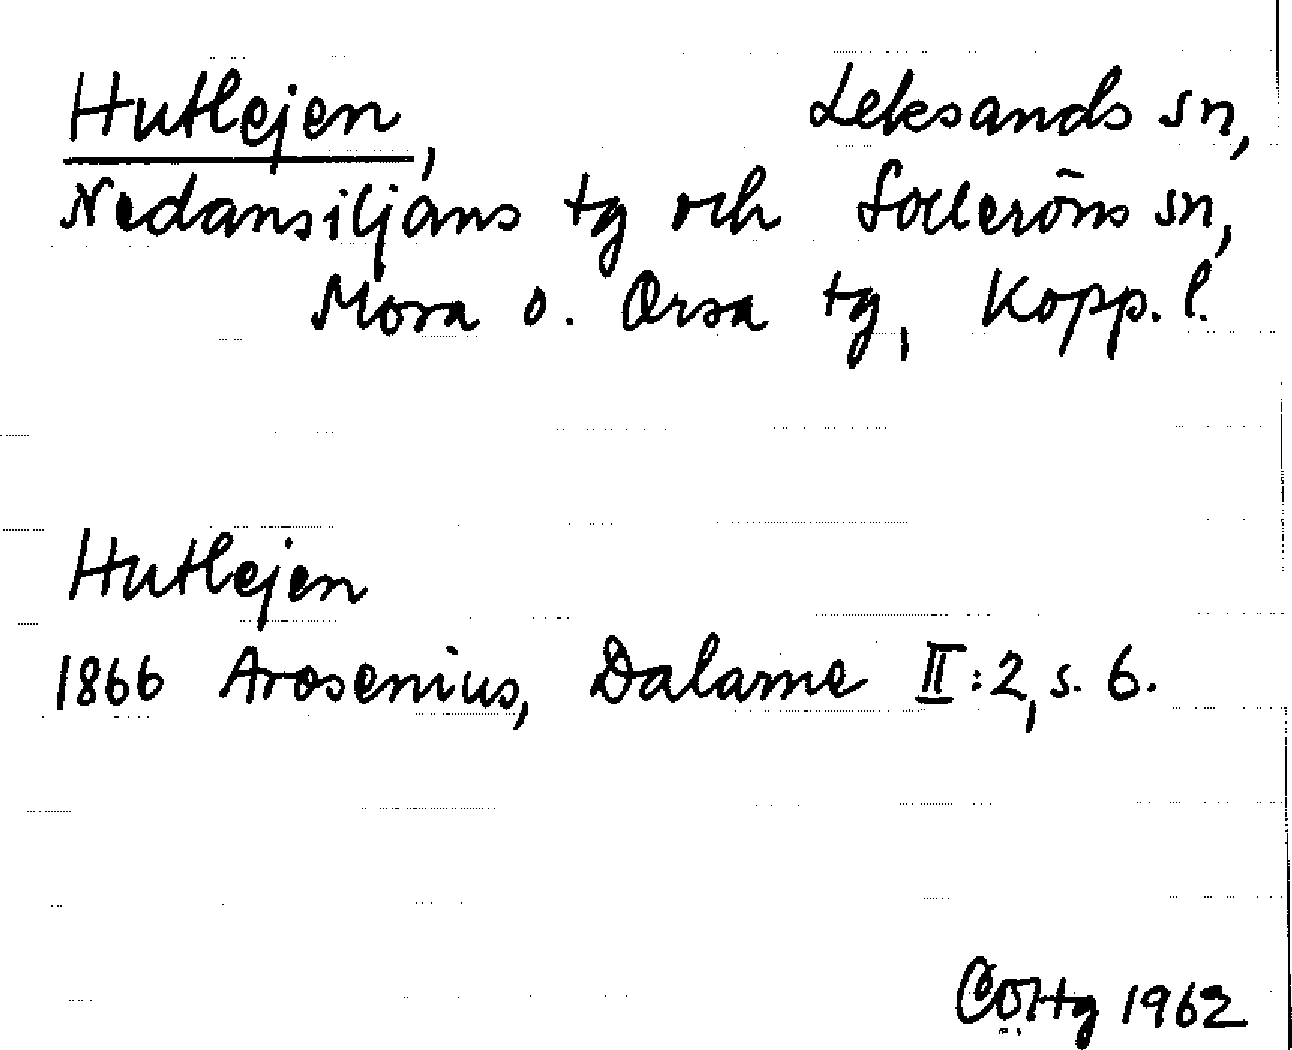 Hutlejen, Leksands sn,
Nedansiljans tg och Solleröns sn,
Mora o. Orsa tg, Kopp. l.
Hutlejen
1866 Arosenius, Dalarne II:2, s. 6.
1962